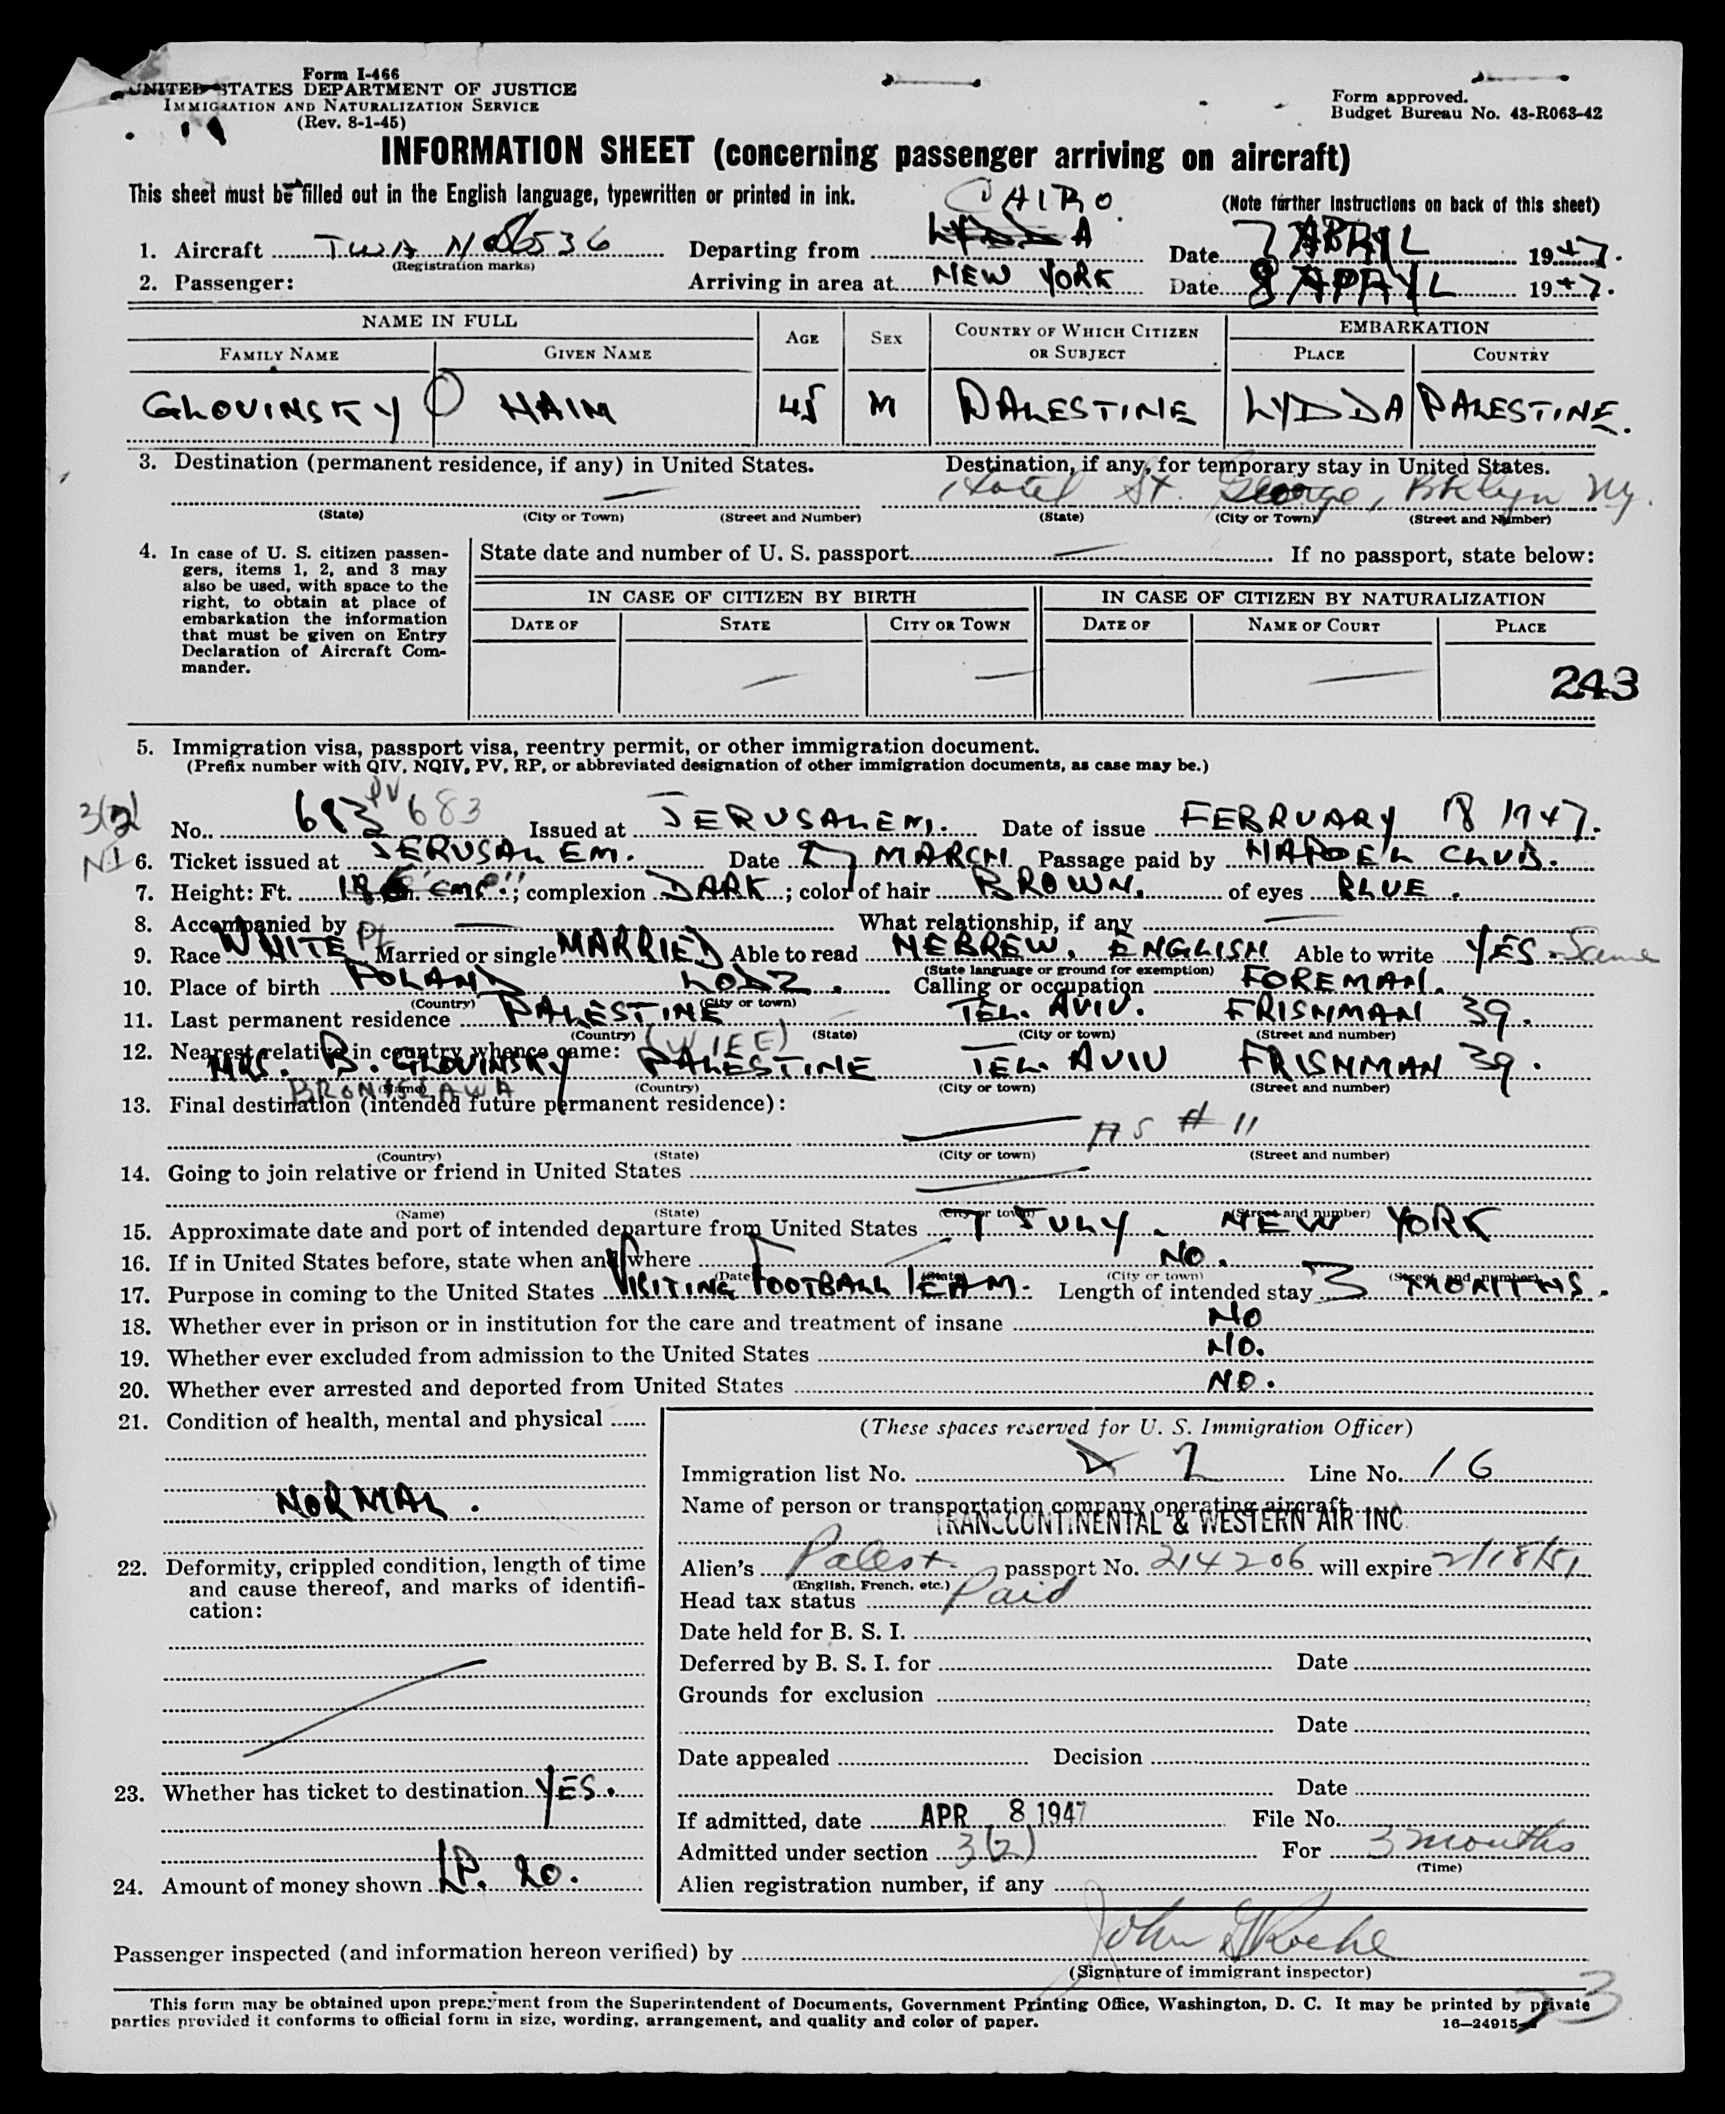 Form I-466
UNITED STATES DEPARTMENT OF JUSTICE
IMMIGRATION AND NATURALIZATION SERVICE
(Rev. 8-1-45)
Form approved.
Budget Bureau No. 43-R063-42
INFORMATION SHEET (concerning passenger arriving on aircraft)
This sheet must be filled out in the English language, typewritten or printed in ink.
(Note further instructions on back of this sheet)
CAIRO
1. Aircraft TWA No 6536 Departing from LYDDA Date 7 APRYL 1947.
(Registration marks)
2. Passenger: Arriving in area at NEW YORK Date 8 APRYL 1947.
NAME IN FULL AGE SEX COUNTRY OF WHICH CITIZEN OR SUBJECT EMBARKATION
FAMILY NAME GIVEN NAME PLACE COUNTRY
GLOVINSKY HAIM 45 M PALESTINE LYDDA PALESTINE.
3. Destination (permanent residence, if any) in United States. Destination, if any, for temporary stay in United States.
— Hotel St. George, Bklyn Ny.
(State) (City or Town) (Street and Number) (State) (City or Town) (Street and Number)
4. In case of U. S. citizen passengers, items 1, 2, and 3 may also be used, with space to the right, to obtain at place of embarkation the information that must be given on Entry Declaration of Aircraft Commander.
State date and number of U. S. passport — If no passport, state below:
IN CASE OF CITIZEN BY BIRTH IN CASE OF CITIZEN BY NATURALIZATION
DATE OF STATE CITY OR TOWN DATE OF NAME OF COURT PLACE
— — — 243
5. Immigration visa, passport visa, reentry permit, or other immigration document.
(Prefix number with QIV, NQIV, PV, RP, or abbreviated designation of other immigration documents, as case may be.)
3(2) No. 683 PV 683 Issued at JERUSALEM. Date of issue FEBRUARY 18 1947.
NI 6. Ticket issued at JERUSALEM. Date 27 MARCH Passage paid by HAPOEL CLUB.
7. Height: Ft. in. cms.; complexion DARK; color of hair BROWN. of eyes BLUE.
8. Accompanied by — What relationship, if any —
9. Race WHITE Married or single MARRIED Able to read HEBREW. ENGLISH Able to write YES. Same
(State language or ground for exemption)
10. Place of birth POLAND LODZ. Calling or occupation FOREMAN.
(Country) (City or town)
11. Last permanent residence PALESTINE — TEL. AVIV. FRISHMAN 39.
(Country) (State) (City or town) (Street and number)
12. Nearest relative in country whence came: (WIFE)
MRS. B. GLOVINSKY PALESTINE TEL. AVIV FRISHMAN 39.
BRONISLAWA (Name) (Country) (City or town) (Street and number)
13. Final destination (intended future permanent residence):
— AS # 11
(Country) (State) (City or town) (Street and number)
14. Going to join relative or friend in United States —
(Name) (State) (City or town) (Street and number)
15. Approximate date and port of intended departure from United States 7 JULY. NEW YORK
16. If in United States before, state when and where NO.
(Date) (State) (City or town) (Street and number)
17. Purpose in coming to the United States VISITING FOOTBALL TEAM. Length of intended stay 3 MONTHS.
18. Whether ever in prison or in institution for the care and treatment of insane NO
19. Whether ever excluded from admission to the United States NO.
20. Whether ever arrested and deported from United States NO.
21. Condition of health, mental and physical
NORMAL.
22. Deformity, crippled condition, length of time and cause thereof, and marks of identification:
23. Whether has ticket to destination YES.
24. Amount of money shown LP. 20.
(These spaces reserved for U. S. Immigration Officer)
Immigration list No. 2 Line No. 16
Name of person or transportation company operating aircraft
TRANSCONTINENTAL & WESTERN AIR INC
Alien's Palest. passport No. 214206 will expire 2/18/51
(English, French, etc.)
Head tax status Paid
Date held for B. S. I.
Deferred by B. S. I. for Date
Grounds for exclusion
Date
Date appealed Decision
Date
If admitted, date APR 8 1947 File No.
Admitted under section 3(2) For 3 months
(Time)
Alien registration number, if any
Passenger inspected (and information hereon verified) by John G Roche
(Signature of immigrant inspector)
This form may be obtained upon prepayment from the Superintendent of Documents, Government Printing Office, Washington, D. C. It may be printed by private
parties provided it conforms to official form in size, wording, arrangement, and quality and color of paper.
16—24915-1